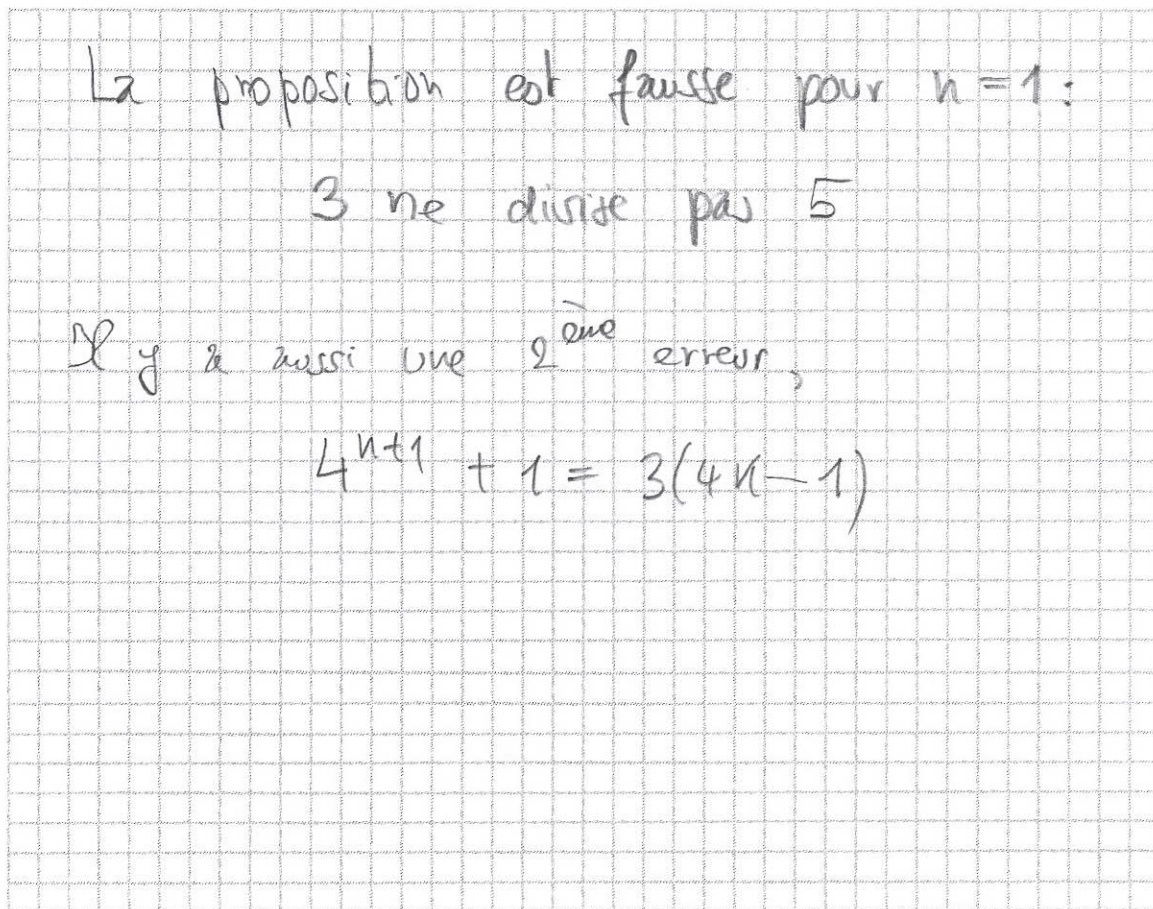 La proposition est fausse pour n = 1 :
3 ne divise pas 5
Il y a aussi une 2ème erreur,
4^{n+1} + 1 = 3(4k - 1)